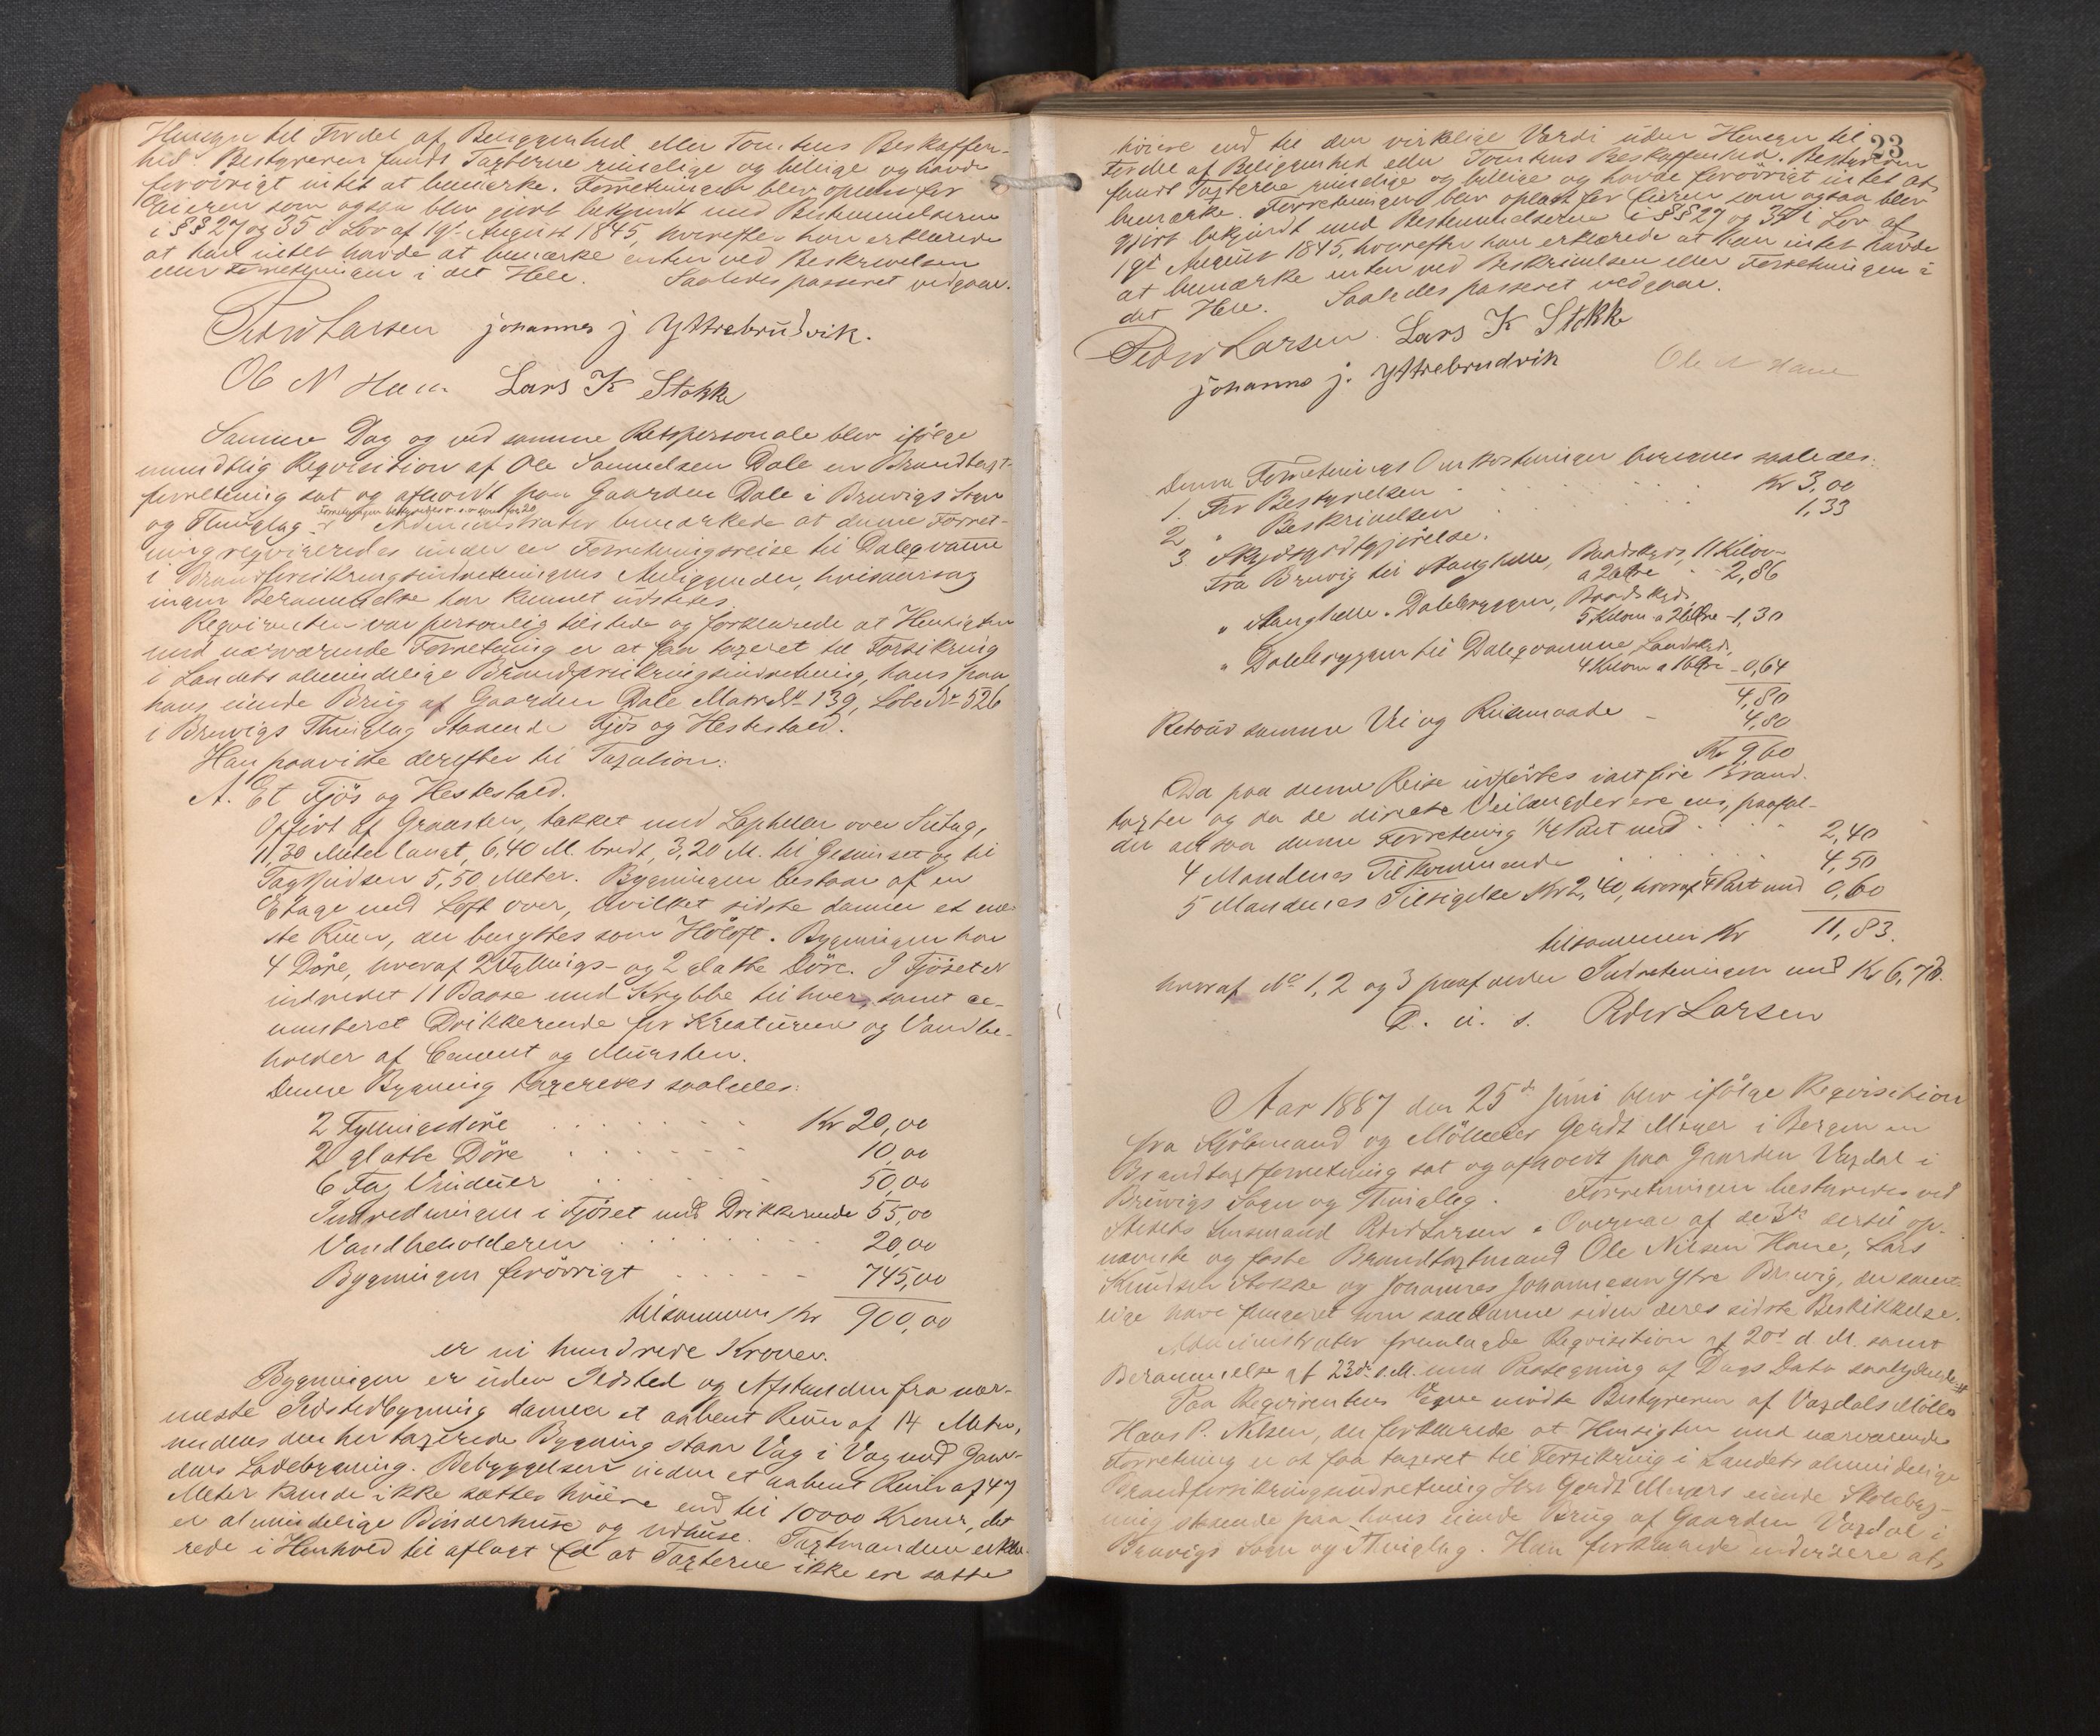 Hensyn til Fordel af Beliggenhed eller Tomtens Beskaffen-
hed. Bestyreren fandt Taxterne rimelige og billige og havde
forøvrigt intet at bemærke. Forretningen blev oplæst for
Eieren som ogsaa blev gjort bekjendt med Bestemmelserne
i §§ 27 og 35 i Lov af 19de August 1845, hvorefter han erklærede
at han intet havde at bemærke enten ved Beskrivelsen
eller Forretningen i det Hele. Saaledes passeret vedgaaes.
Peder Larsen johannes j. Yttrebrudvik.
Ole N Hane Lars K Stokke
Samme Dag og ved samme Retspersonale blev ifølge
mundtlig Reqvisition af Ole Samuelsen Dale en Brandtaxt-
forretning sat og afholdt paa Gaarden Dale i Bruvigs Sogn
og Thinglag.
Administrator bemærkede at denne Forret-
ning reqvireredes under en Forretningsreise til Daleqvamme
i Brandforsikringsindretningens Anliggender, hvisaarsag
ingen Berammelse har kunnet udstedes.
Reqvirenten var personlig tilstede og forklarede at Hensigten
med nærværende Forretning er at faa taxeret til Forsikring
i Landets almindelige Brandforsikringsindretning, hans paa
hans eiende Brug af Gaarden Dale Matr No 139, Løbe No 526
i Bruvigs Thinglag staaende Fjøs og Hestestald.
Han paaviste derefter til Taxation:
A. Et Fjøs og Hestestald.
Opført af Graasten, tækket med Lapheller over Sutag,
11,30 Meter langt, 6,40 M. bredt, 3,20 M. til Gesimset og til
Tagspidsen 5,50 Meter. Bygningen bestaar af en
Etage med Loft over, hvilket sidste danner et ene-
ste Rum, der benyttes som Høloft. Bygningen har
4 Døre, hvoraf 2 Fyllings- og 2 glatte Døre. I Fjøset er
indredet 11 Baase med Krybbe til hver, samt ce-
menteret Drikkerende for Kreaturene og Vandbe-
holder af Cement og Mursten.
Denne Bygning taxeredes saaledes:
2 Fyllingsdøre . . . . . . . Kr 20,00
2 glatte Døre . . . . . . 10,00
6 Fag Vinduer . . . . . . 50,00
Indredningen i Fjøset med Drikkerende 55,00
Vandbeholderen . . . . . . 20,00
Bygningen forøvrigt . . . . . 745,00
tilsammen Kr 900,00
er ni hundrede Kroner.
Bygningen er uden Ildsted og Afstanden fra nær-
meste Ildstedbygning danner et aabent Rum af 14 Meter,
medens den her taxerede Bygning staar Væg i Væg med Gaar-
dens Ladebygning. Bebyggelsen inden et aabent Rum af 47
Meter kunde ikke sættes høiere end til 10000 Kroner, det
er almindelige Bønderhuse og Udhuse. Taxtmændene erklæ-
rede i Henhold til aflagt Ed at Taxterne ikke ere satte
23
høiere end til den virkelige Værdi uden Hensyn til
Fordel af Beliggenhed eller Tomtens Beskaffenhed. Bestyreren
fandt Taxterne rimelige og billige og havde forøvrigt intet at
bemærke. Forretningen blev oplæst for Eieren som ogsaa blev
gjort bekjendt med Bestemmelserne i §§ 27 og 35 i Lov af
19de August 1845, hvorefter han erklærede at han intet havde
at bemærke enten ved Beskrivelsen eller Forretningen i
det Hele. Saaledes passeret vedgaaes.
Peder Larsen. Lars K Stokke
johannes j. Yttrebrudvik Ole N Hane
Denne Forretnings Omkostninger beregnes saaledes:
1. For Bestyrelsen . . . . . Kr 3,00
2 " Beskrivelsen . . . . . 1,33
3 Skydsgodtgjørelse.
Fra Bruvig til Stanghelle, Baadskyds, 11 Kilom
a 26 Øre . . 2,86
" Stanghelle - Dalebryggen, Baadskyds,
5 Kilom a 26 Øre - 1,30
" Dalebryggen til Daleqvamme, Landskyds,
4 Kilom a 16 Øre - 0,64
4,80
Retour samme Vei og Reisemaade - 4,80
Kr 9,60
Da paa denne Reise udførtes ialt fire Brand-
taxter og da de directe Veilængder ere ens, paafal-
der altsaa denne Forretning 1/4 Part med . . . . 2,40
4 Mændenes Tilkommende . . . . . 4,50
5 Mændenes Tilsigelse Kr 2,40, hvoraf 1/4 Part med 0,60
tilsammen Kr 11,83.
hvoraf No 1, 2 og 3 paahviler Indretningen med Kr 6,73.
D. u. s. Peder Larsen
Aar 1887 den 25de Juni blev ifølge Reqvisition
fra Kjøbmand og Mølleeier Gerdt Meyer i Bergen en
Brandtaxtforretning sat og afholdt paa Gaarden Vaxdal i
Bruvigs Sogn og Thinglag. Forretningen bestyredes ved
Stedets Lensmand Peder Larsen i Overvær af de 3de dertil op-
nævnte og faste Brandtaxtmænd Ole Nilsen Hane, Lars
Knudsen Stokke og Johannes Johannesen Ytre Bruvig, der samt-
lige have fungeret som saadanne siden deres sidste Beskikkelse.
Administrator fremlagde Reqvisition af 20de d. M. samt
Berammelse af 23de s. M. med Paategning af Dags Dato saalydende:
Paa Reqvirentens Vegne mødte Bestyreren af Vaxdals Mølle
Hans P. Nilsen, der forklarede at Hensigten med nærværende
Forretning er at faa taxeret til Forsikring i Landets almindelige
Brandforsikringsindretning Hr Gerdt Meyers eiende Skolebyg-
ning staaende paa hans eiende Brug af Gaarden Vaxdal i
Bruvigs Sogn og Thinglag. Han forklarede endvidere at